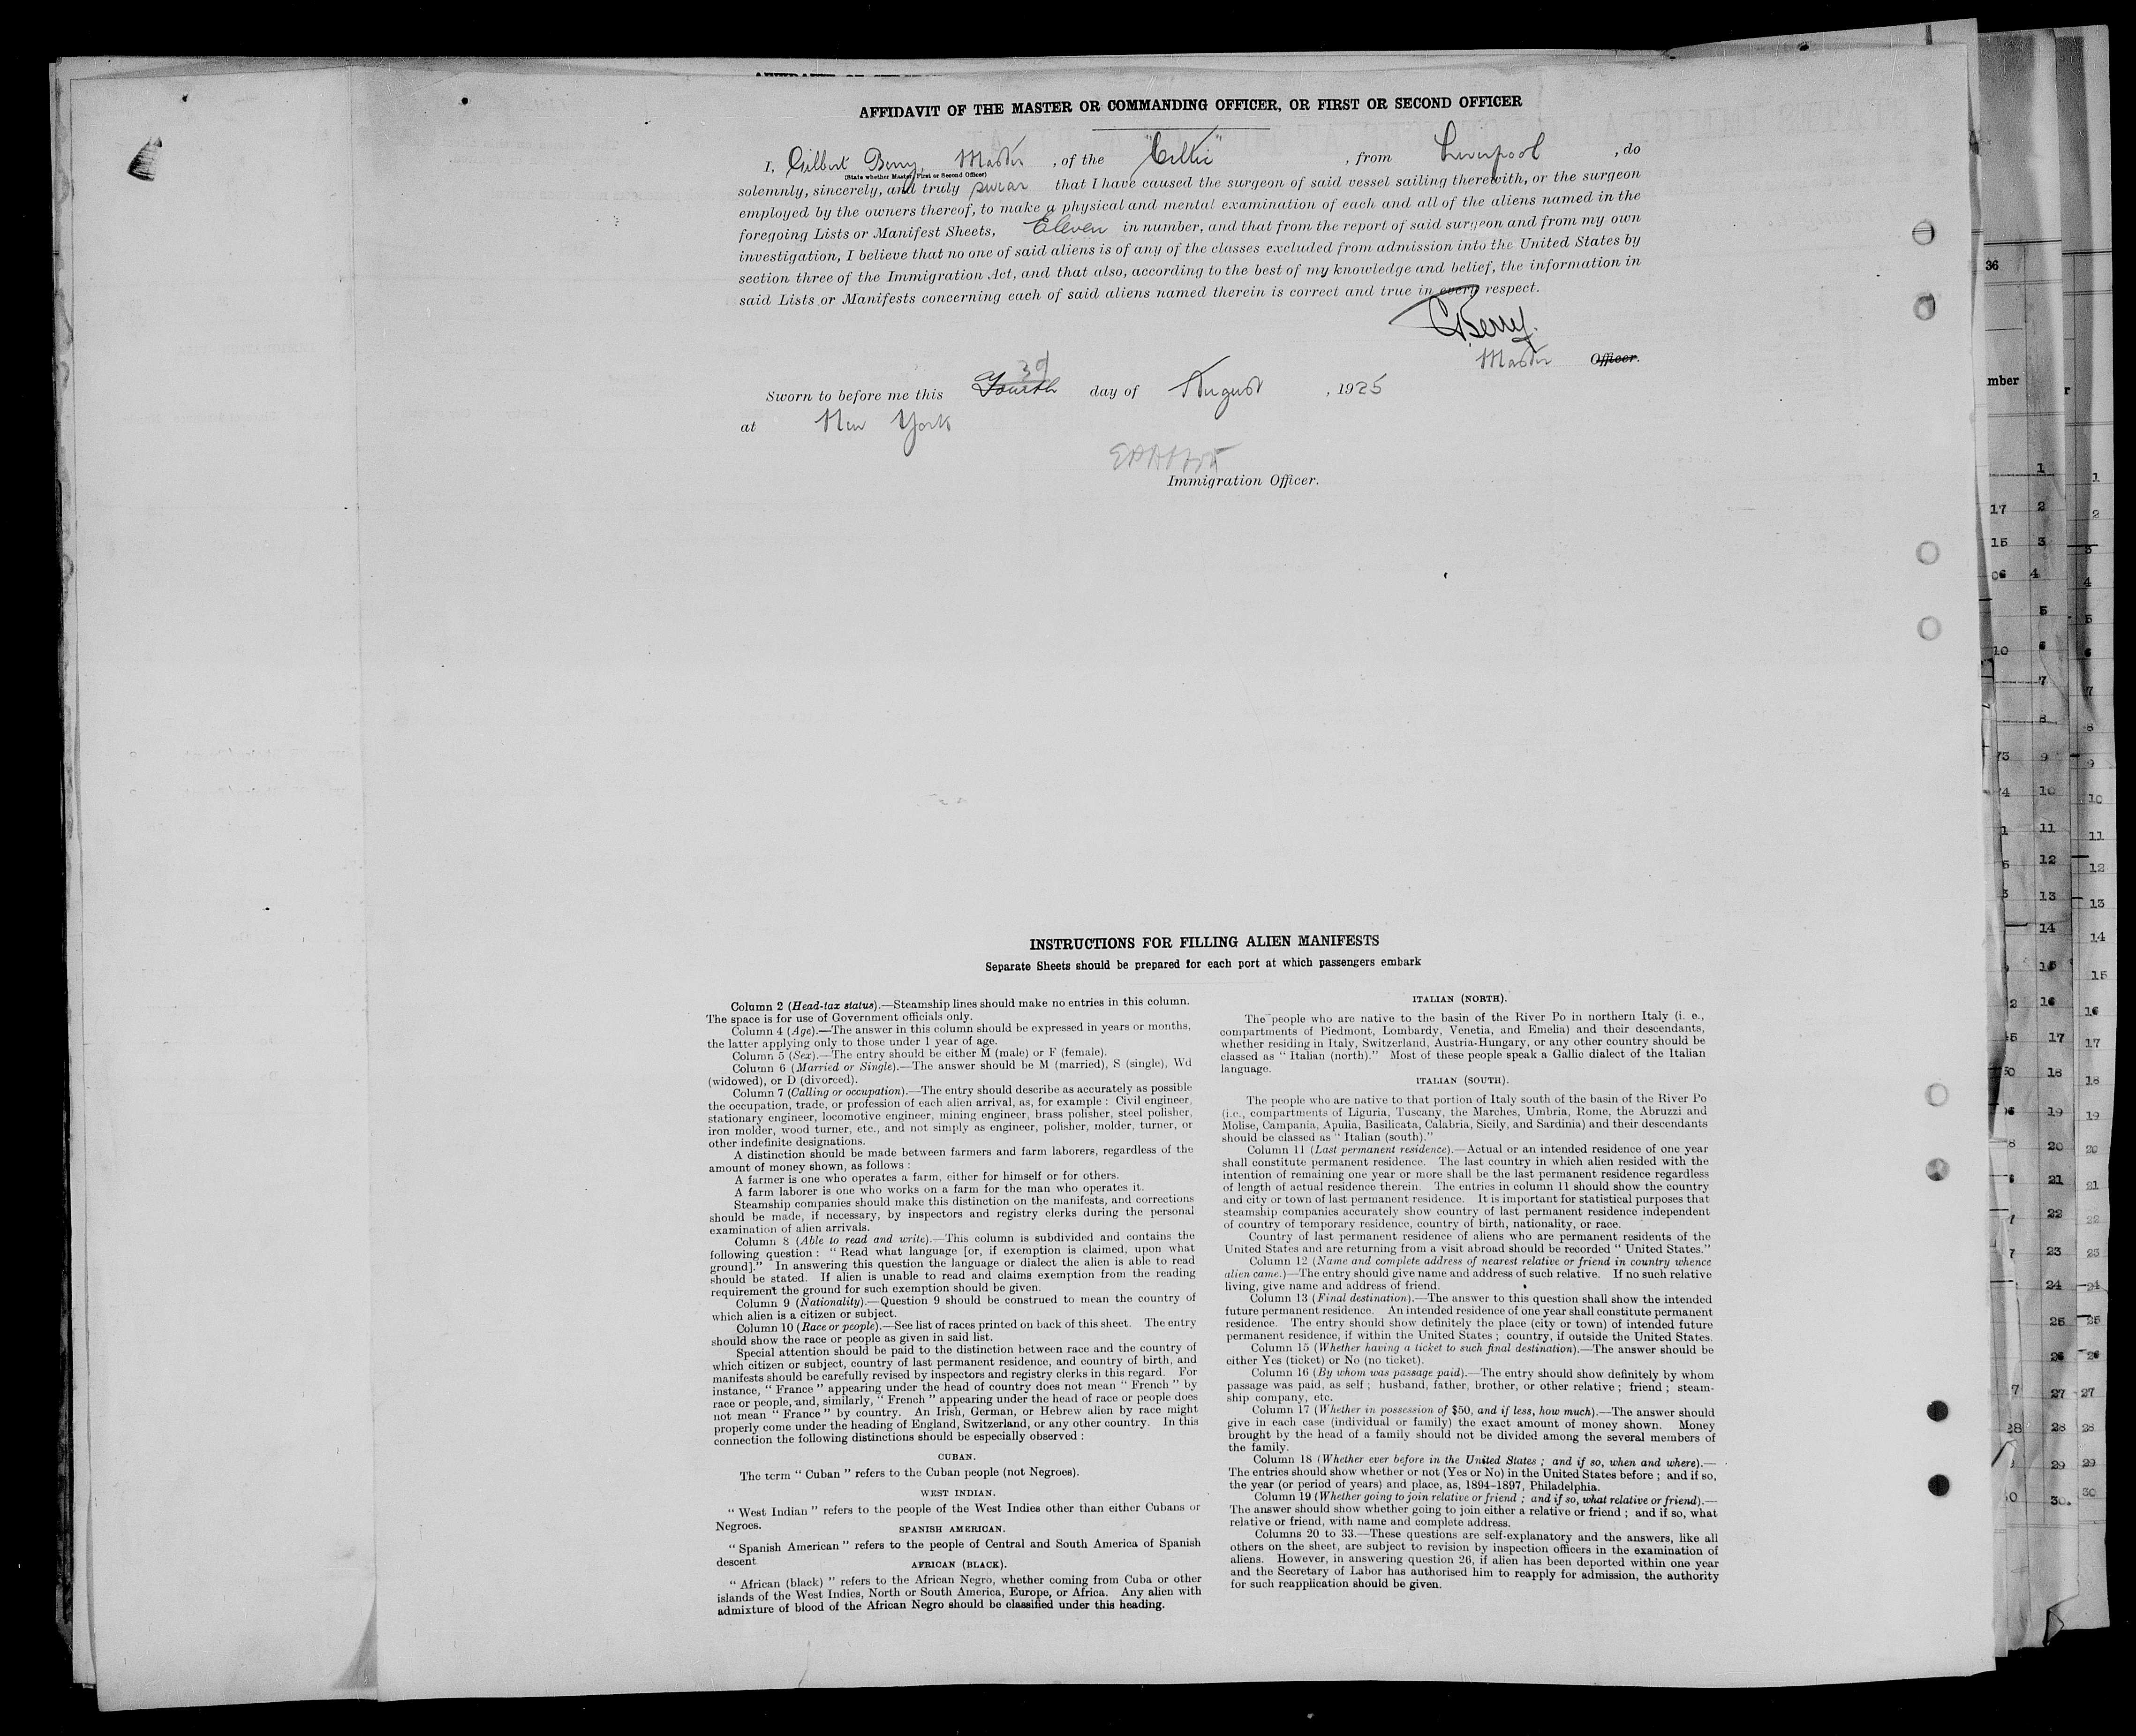 AFFIDAVIT OF THE MASTER OR COMMANDING OFFICER, OR FIRST OR SECOND OFFICER
I, Gilbert Berry, Master , of the "Celtic" , from Liverpool , do
(State whether Master, First or Second Officer)
solemnly, sincerely, and truly swear that I have caused the surgeon of said vessel sailing therewith, or the surgeon
employed by the owners thereof, to make a physical and mental examination of each and all of the aliens named in the
foregoing Lists or Manifest Sheets, Eleven in number, and that from the report of said surgeon and from my own
investigation, I believe that no one of said aliens is of any of the classes excluded from admission into the United States by
section three of the Immigration Act, and that also, according to the best of my knowledge and belief, the information in
said Lists or Manifests concerning each of said aliens named therein is correct and true in every respect.
G Berry.
Master Officer.
3d
Sworn to before me this Fourth day of August , 1925
at New York
Immigration Officer.
INSTRUCTIONS FOR FILLING ALIEN MANIFESTS
Separate Sheets should be prepared for each port at which passengers embark
Column 2 (Head-tax status).—Steamship lines should make no entries in this column.
The space is for use of Government officials only.
Column 4 (Age).—The answer in this column should be expressed in years or months,
the latter applying only to those under 1 year of age.
Column 5 (Sex).—The entry should be either M (male) or F (female).
Column 6 (Married or Single).—The answer should be M (married), S (single), Wd
(widowed), or D (divorced).
Column 7 (Calling or occupation).—The entry should describe as accurately as possible
the occupation, trade, or profession of each alien arrival, as, for example : Civil engineer,
stationary engineer, locomotive engineer, mining engineer, brass polisher, steel polisher,
iron molder, wood turner, etc., and not simply as engineer, polisher, molder, turner, or
other indefinite designations.
A distinction should be made between farmers and farm laborers, regardless of the
amount of money shown, as follows :
A farmer is one who operates a farm, either for himself or for others.
A farm laborer is one who works on a farm for the man who operates it.
Steamship companies should make this distinction on the manifests, and corrections
should be made, if necessary, by inspectors and registry clerks during the personal
examination of alien arrivals.
Column 8 (Able to read and write).—This column is subdivided and contains the
following question : " Read what language [or, if exemption is claimed, upon what
ground]." In answering this question the language or dialect the alien is able to read
should be stated. If alien is unable to read and claims exemption from the reading
requirement the ground for such exemption should be given.
Column 9 (Nationality).—Question 9 should be construed to mean the country of
which alien is a citizen or subject.
Column 10 (Race or people).—See list of races printed on back of this sheet. The entry
should show the race or people as given in said list.
Special attention should be paid to the distinction between race and the country of
which citizen or subject, country of last permanent residence, and country of birth, and
manifests should be carefully revised by inspectors and registry clerks in this regard. For
instance, " France " appearing under the head of country does not mean " French " by
race or people, and, similarly, " French " appearing under the head of race or people does
not mean " France " by country. An Irish, German, or Hebrew alien by race might
properly come under the heading of England, Switzerland, or any other country. In this
connection the following distinctions should be especially observed :
CUBAN.
The term " Cuban " refers to the Cuban people (not Negroes).
WEST INDIAN.
" West Indian " refers to the people of the West Indies other than either Cubans or
Negroes.
SPANISH AMERICAN.
" Spanish American " refers to the people of Central and South America of Spanish
descent
AFRICAN (BLACK).
" African (black) " refers to the African Negro, whether coming from Cuba or other
islands of the West Indies, North or South America, Europe, or Africa. Any alien with
admixture of blood of the African Negro should be classified under this heading.
ITALIAN (NORTH).
The people who are native to the basin of the River Po in northern Italy (i. e.,
compartments of Piedmont, Lombardy, Venetia, and Emelia) and their descendants,
whether residing in Italy, Switzerland, Austria-Hungary, or any other country should be
classed as " Italian (north)." Most of these people speak a Gallic dialect of the Italian
language.
ITALIAN (SOUTH).
The people who are native to that portion of Italy south of the basin of the River Po
(i.e., compartments of Liguria, Tuscany, the Marches, Umbria, Rome, the Abruzzi and
Molise, Campania, Apulia, Basilicata, Calabria, Sicily, and Sardinia) and their descendants
should be classed as " Italian (south)."
Column 11 (Last permanent residence).—Actual or an intended residence of one year
shall constitute permanent residence. The last country in which alien resided with the
intention of remaining one year or more shall be the last permanent residence regardless
of length of actual residence therein. The entries in column 11 should show the country
and city or town of last permanent residence. It is important for statistical purposes that
steamship companies accurately show country of last permanent residence independent
of country of temporary residence, country of birth, nationality, or race.
Country of last permanent residence of aliens who are permanent residents of the
United States and are returning from a visit abroad should be recorded " United States."
Column 12 (Name and complete address of nearest relative or friend in country whence
alien came.)—The entry should give name and address of such relative. If no such relative
living, give name and address of friend.
Column 13 (Final destination).—The answer to this question shall show the intended
future permanent residence. An intended residence of one year shall constitute permanent
residence. The entry should show definitely the place (city or town) of intended future
permanent residence, if within the United States ; country, if outside the United States.
Column 15 (Whether having a ticket to such final destination).—The answer should be
either Yes (ticket) or No (no ticket).
Column 16 (By whom was passage paid).—The entry should show definitely by whom
passage was paid, as self ; husband, father, brother, or other relative ; friend ; steam-
ship company, etc.
Column 17 (Whether in possession of $50, and if less, how much).—The answer should
give in each case (individual or family) the exact amount of money shown. Money
brought by the head of a family should not be divided among the several members of
the family.
Column 18 (Whether ever before in the United States ; and if so, when and where).—
The entries should show whether or not (Yes or No) in the United States before ; and if so,
the year (or period of years) and place, as, 1894–1897, Philadelphia.
Column 19 (Whether going to join relative or friend ; and if so, what relative or friend).—
The answer should show whether going to join either a relative or friend ; and if so, what
relative or friend, with name and complete address.
Columns 20 to 33.—These questions are self-explanatory and the answers, like all
others on the sheet, are subject to revision by inspection officers in the examination of
aliens. However, in answering question 26, if alien has been deported within one year
and the Secretary of Labor has authorised him to reapply for admission, the authority
for such reapplication should be given.